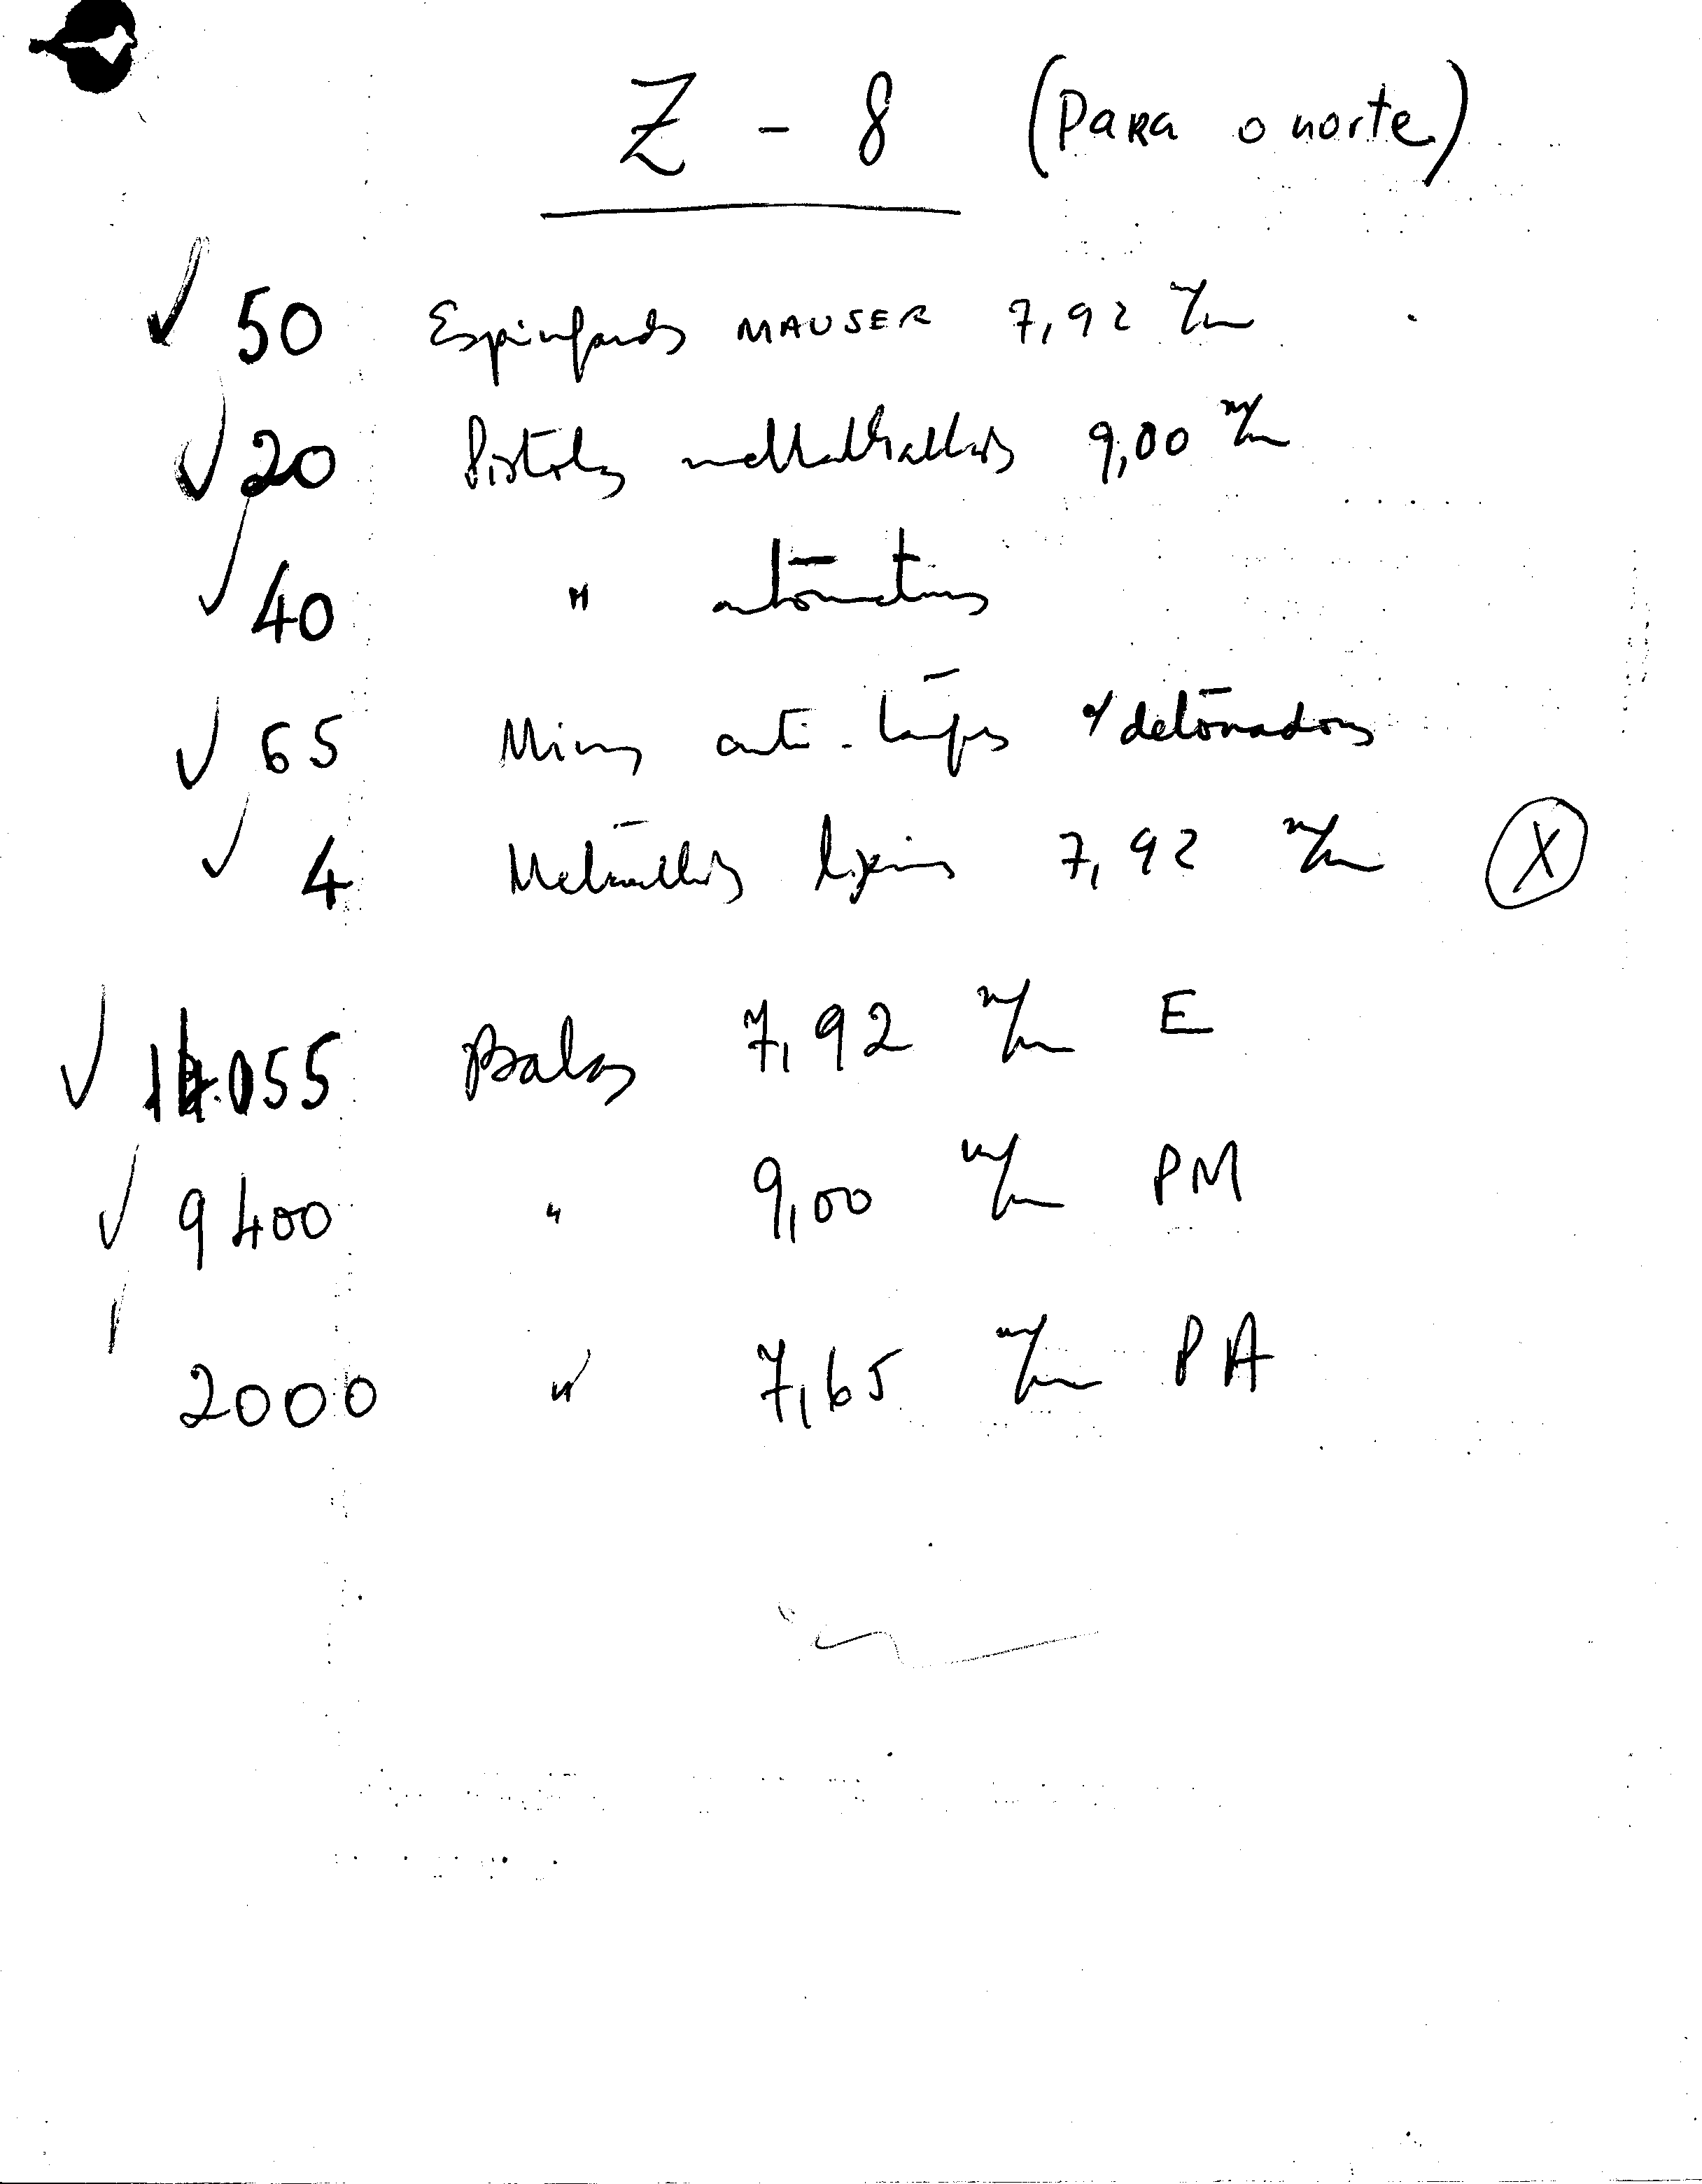 Z - 8 (Para o norte)
✓ 50 Espingardas MAUSER 7,92 m/m
✓ 20 Pistolas metralhadoras 9,00 m/m
✓ 40 " automáticas
✓ 65 Minas anti-tanques c/ detonadores
✓ 4 Metralhadoras ligeiras 7,92 m/m X
✓ 055 Balas 7,92 m/m E
✓ 9400 " 9,00 m/m PM
2000 " 7,65 m/m PA